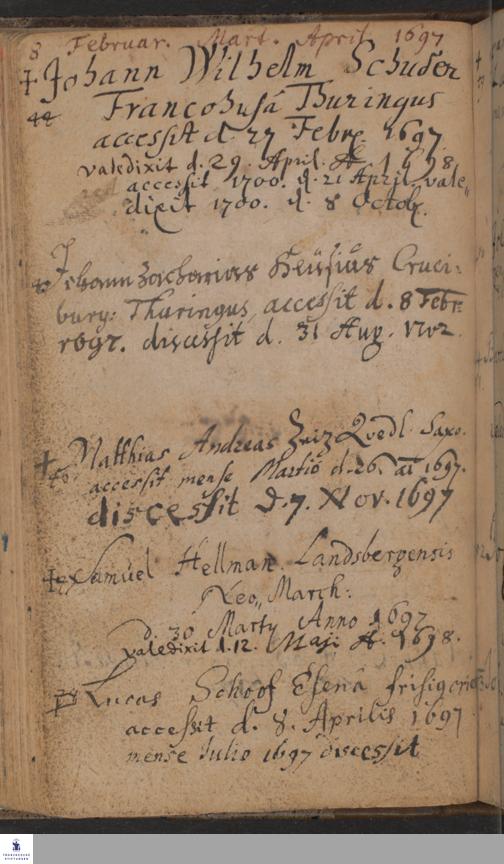 8 Februar. Mart. April 1697
Johann Wilhelm Schuder
44 Francohusâ Thuringus
accessit d. 27 Febr. 1697
valedixit d. 29. April. A. 1698.
accessit 1700. d. 21 April vale„
dixit 1700. d. 8 Octob.
Johann Zacharias Heüsius Cruci:
burg: Thuringus accessit d. 8 Febr.
1697. discessit d. 31 Aug. 1702.
Matthias Andreas Zeiz Qvedl. Saxo.
accessit mense Martio d. 26. a 1697.
discessit D. 7. Nov. 1697
Samuel Hellman Landsbergensis
Neo„ March:
d. 30 Martÿ Anno 1697
valedixit d. 12. Maji A. 1698.
38 Lucas Schoof Esenâ frisig
accessit d. 8. Aprilis 1697
mense Julio 1697 discessit
FRANCKESCHE
STIFTUNGEN